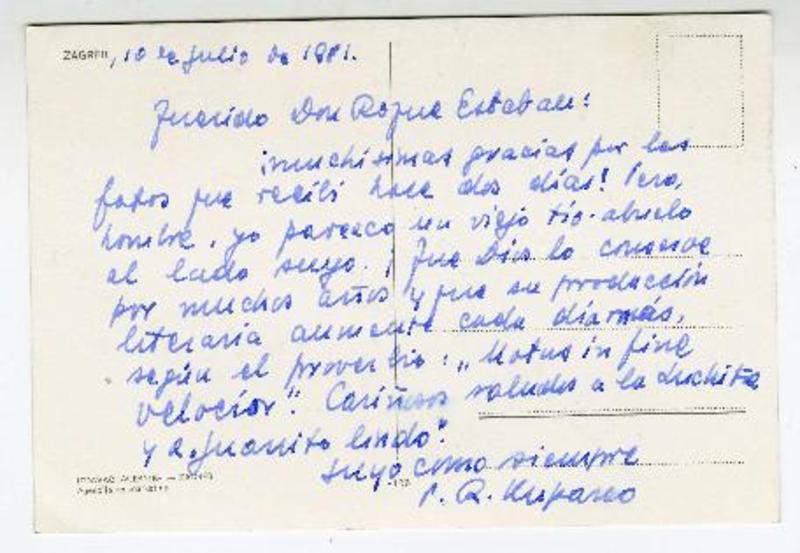 ZAGREB, 10 de julio de 1981.
Querido Don Roque Esteban:
¡muchísimas gracias por las
fotos que recibí hace dos días! Pero,
hombre, yo parezco un viejo tío-abuelo
al lado suyo. ¡Que Dios lo conserve
por muchos años y que su producción
literaria aumente cada día más,
según el proverbio: „Motus in fine
velocior". Cariñosos saludos a la Luchita
y a „Juanito lindo".
suyo como siempre
R. Kupareo